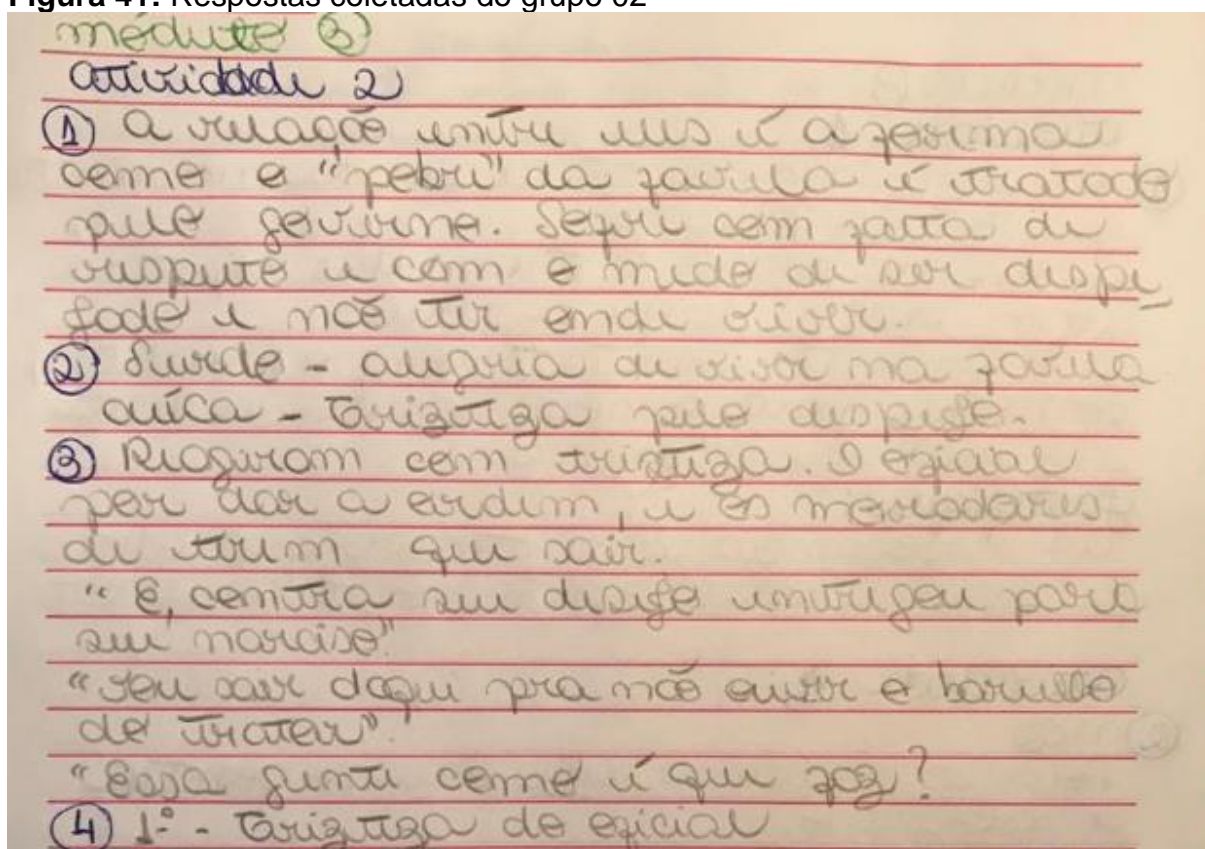 Figura 41: Respostas coletadas do grupo 02
módulo 3
Atividade 2
① A relação entre eles é a forma
como o "pobre" da favela é tratado
pelo governo. Sofre com falta de
respeito e com o medo de ser despe_
jado e não ter onde viver.
② Surdo - alegria de viver na favela
cuíca - Trizteza pelo despejo.
③ Reagiram com tristeza. O oficial
por dar a ordem, e os moradores
de terem que sair.
"E, contra seu desejo entregou para
seu narciso"
"vou sair daqui pra não ouvir o barulho
do trator".
"Essa gente como é que faz?
④ 1º - Trizteza do oficial